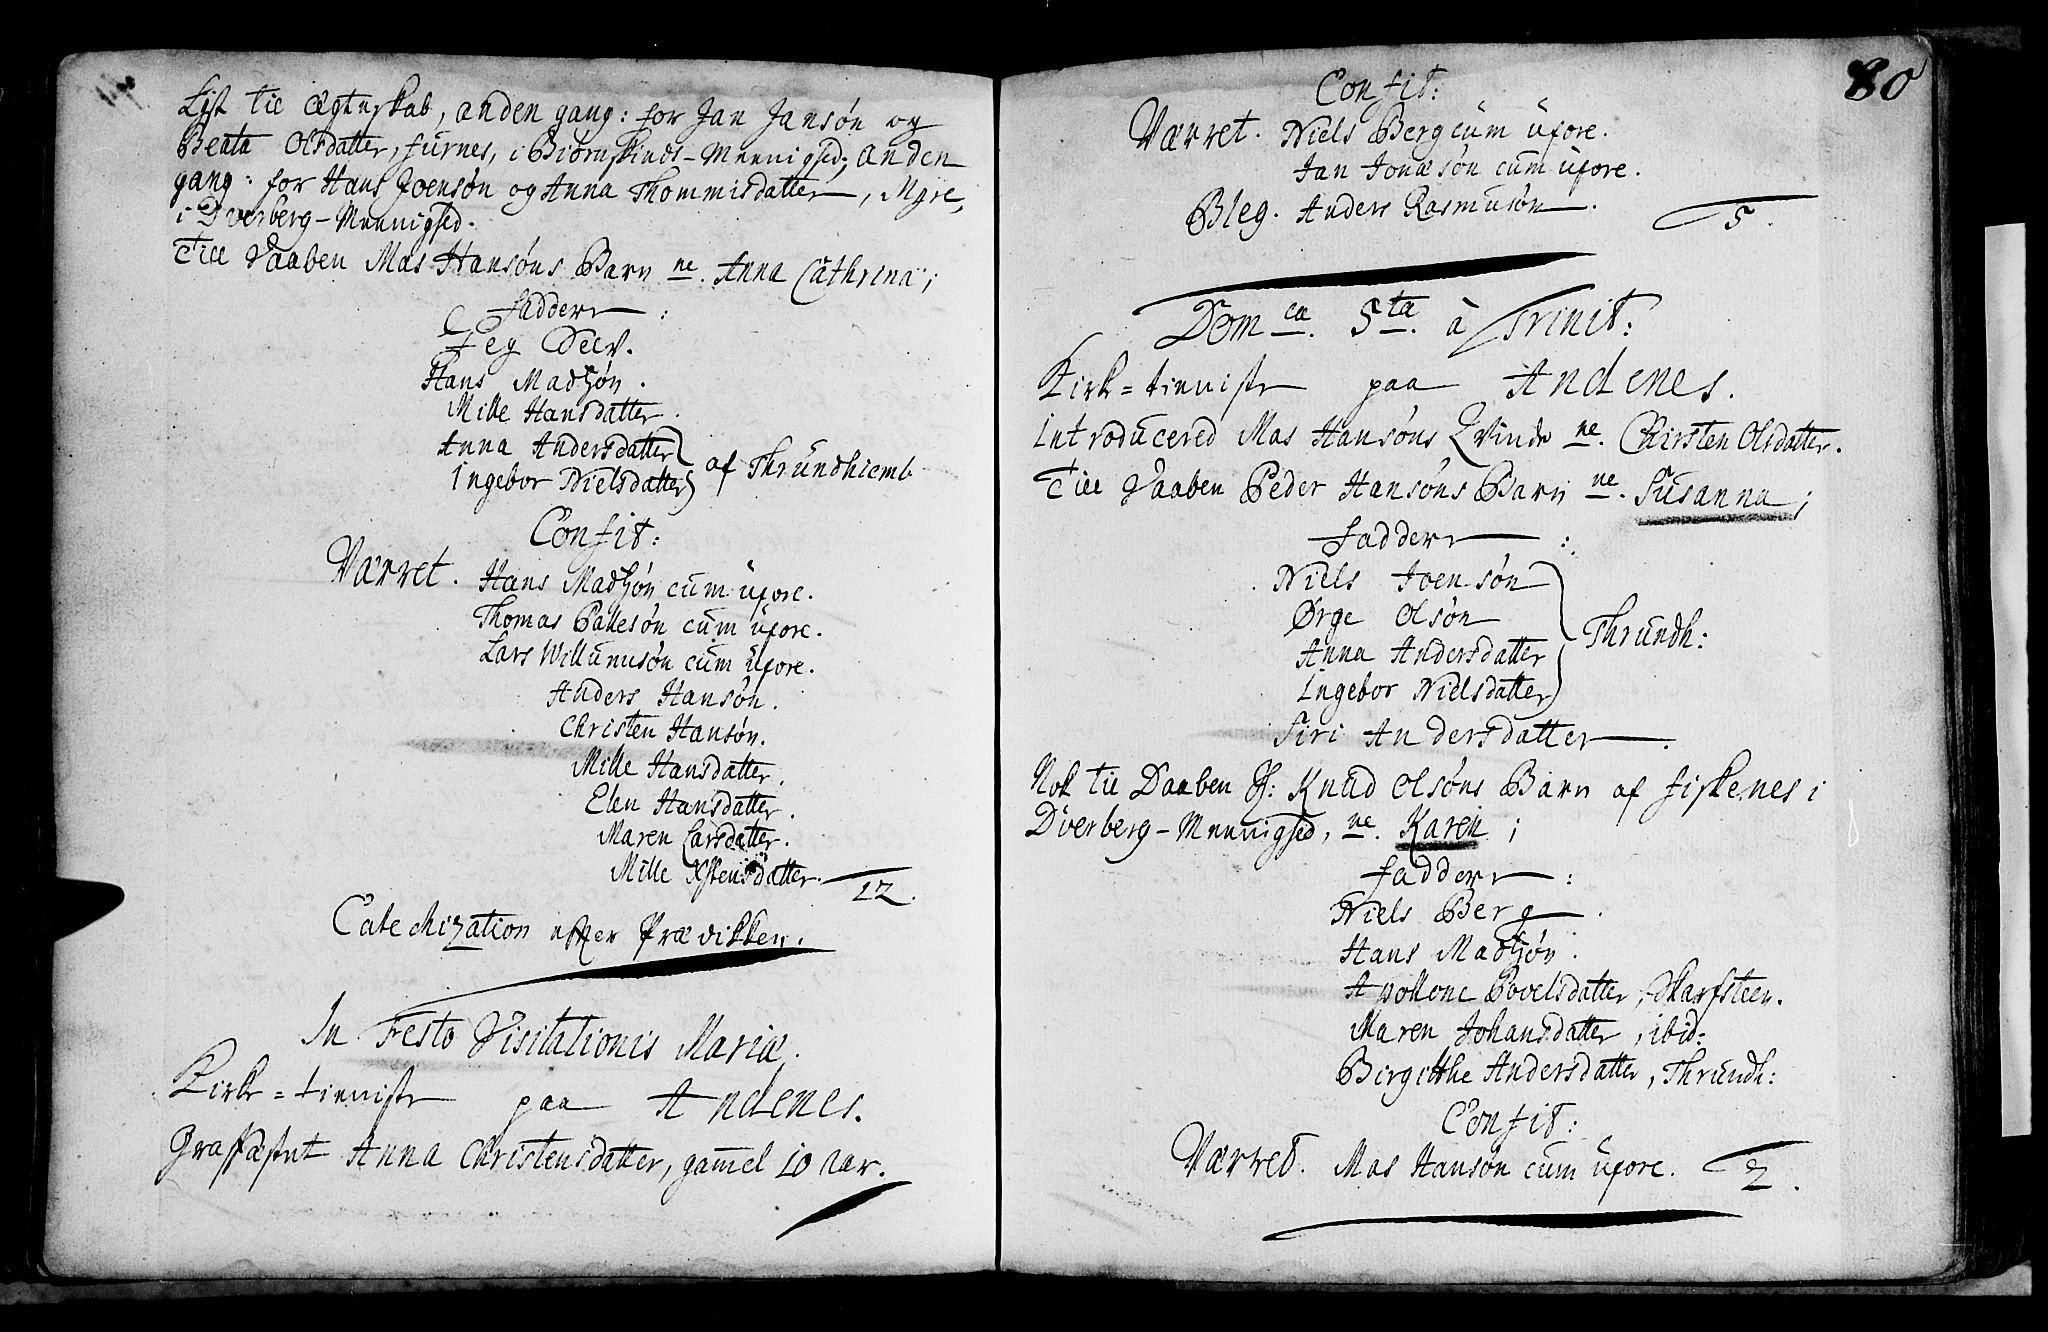 Lyst til Ægteskab, anden gang: for Jan Jansøn og
Beata Olsdatter, furnes, i Biørnskinds-Meenighed; anden
gang: for Hans Joensøn og Anna Thommisdatter, Myre,
i Dverberg-Meenighed.
Till Daaben Mas Hansøns Barn ne. Anna Cathrina;
Faddere:
Jeg Selv.
Hans Madsøn.
Mille Hansdatter.
Anna Andersdatter
Ingebor Nielsdatter af Thrundhiemb
Confit:
Værret. Hans Madsøn cum uxore.
Thomas Pallesøn cum uxore.
Lars Willumsøn cum uxore.
Anders Hansøn.
Christen Hansøn.
Mille Hansdatter.
Elen Hansdatter.
Maren Larsdatter.
Mille Xstensdatter.
12.
Catechization efter Prædikken.
In Festo Visitationis Mariæ.
Kirke=tieniste paa Andenes.
Grafkastet Anna Christensdatter, gamel 10 aar.
80
Confit:
Værret. Niels Berg cum uxore.
Jan Jonæsøn cum uxore.
Bleg. Anders Rasmusøn.
5.
Domca. 5ta. à Trinit:
Kirke=tieniste paa Andenes.
Introducered Mas Hansøns Qvinde ne. Chirsten Olsdatter.
Till Daaben Peder Hansøns Barn ne. Susanna;
Faddere:
Niels Joensøn
Ørge Olsøn
Anna Andersdatter
Ingebor Nielsdatter
Thrundh:
Siri Andersdatter.
Nok til Daaben H: Knud Olsøns Barn af fiskenes i
Dverberg-Meenighed, ne. Karen;
Faddere:
Niels Berg.
Hans Madsøn.
Apollone Povelsdatter, Skarfsteen.
Maren Johansdatter, ibid:
Birgitthe Andersdatter, Thrundh:
Confit:
Værret. Mas Hansøn cum uxore.
2.